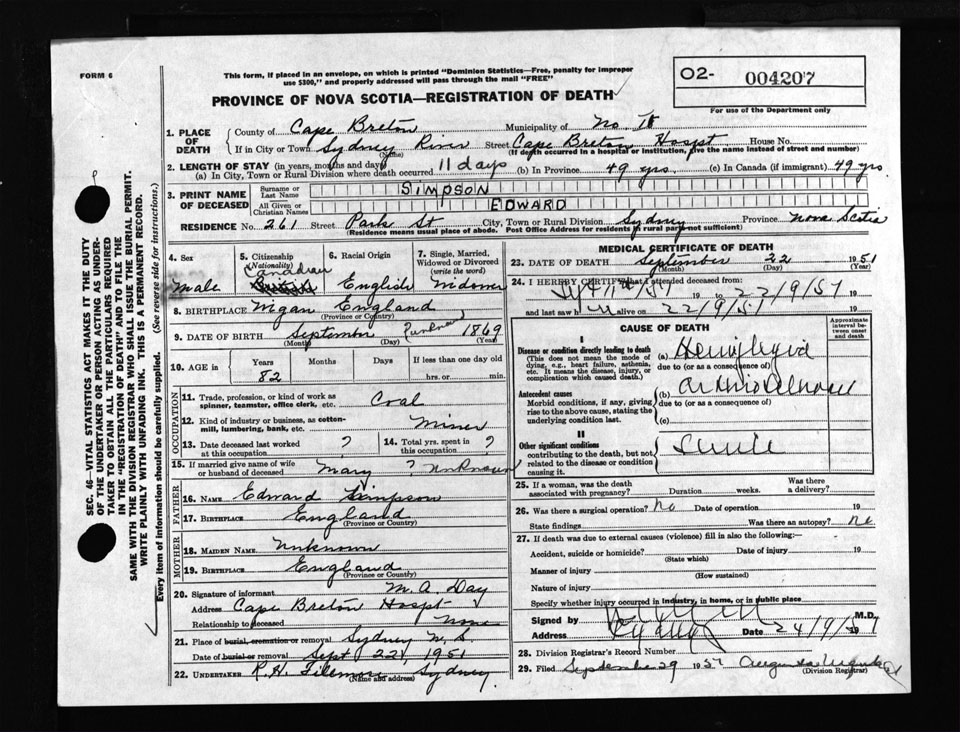 FORM 6
This form, if placed in an envelope, on which is printed "Dominion Statistics—Free, penalty for improper
use $300," and properly addressed will pass through the mail "FREE"
O2- 004207
For use of the Department only
PROVINCE OF NOVA SCOTIA—REGISTRATION OF DEATH
1. PLACE OF DEATH
County of Cape Breton Municipality of No
If in City or Town Sydney River Street Cape Breton Hospt House No.
(Name) (If death occurred in a hospital or institution, give the name instead of street and number)
2. LENGTH OF STAY (in years, months and days)
(a) In City, Town or Rural Division where death occurred 11 days (b) In Province 49 yrs. (c) In Canada (if immigrant) 49 yrs
3. PRINT NAME OF DECEASED
Surname or Last Name SIMPSON
All Given or Christian Names EDWARD
RESIDENCE No. 261 Street Park St City, Town or Rural Division Sydney Province Nova Scotia
(Residence means usual place of abode. Post Office Address for residents in rural parts not sufficient)
4. Sex
Male
5. Citizenship
(Nationality)
Canadian
6. Racial Origin
English
7. Single, Married,
Widowed or Divorced
(write the word)
Widower
8. BIRTHPLACE Wigan England
(Province or Country)
9. DATE OF BIRTH September (unknown) 1869
(Month) (Day) (Year)
10. AGE in
Years Months Days If less than one day old
82 hrs. or min.
OCCUPATION
11. Trade, profession, or kind of work as
spinner, teamster, office clerk, etc. Coal
12. Kind of industry or business, as cotton-
mill, lumbering, bank, etc. Miner
13. Date deceased last worked
at this occupation ?
14. Total yrs. spent in
this occupation ?
15. If married give name of wife
or husband of deceased Mary ? Unknown
FATHER
16. NAME Edward Simpson
17. BIRTHPLACE England
(Province or Country)
MOTHER
18. MAIDEN NAME Unknown
19. BIRTHPLACE England
(Province or Country)
20. Signature of informant M. A. Day
Address Cape Breton Hospt
Relationship to deceased None
21. Place of burial, cremation or removal Sydney N. S.
Date of burial or removal Sept 22 1951
22. UNDERTAKER R. H. Sydney
(Name and address)
MEDICAL CERTIFICATE OF DEATH
23. DATE OF DEATH September 22 1951
(Month) (Day) (Year)
24. I HEREBY CERTIFY that I attended deceased from:
19 to 22/9/51 19
and last saw h alive on 22/9/51 19
CAUSE OF DEATH
Approximate
interval be-
tween onset
and death
I
Disease or condition directly leading to death
(This does not mean the mode of
dying, e.g., heart failure, asthenia,
etc. It means the disease, injury, or
complication which caused death.)
(a) Hemiplegia
due to (or as a consequence of)
Antecedent causes
Morbid conditions, if any, giving
rise to the above cause, stating the
underlying condition last.
(b)
due to (or as a consequence of)
(c)
II
Other significant conditions
contributing to the death, but not
related to the disease or condition
causing it.
Senile
25. If a woman, was the death
associated with pregnancy? Duration weeks. Was there
a delivery?
26. Was there a surgical operation? No Date of operation 19
State findings Was there an autopsy? No
27. If death was due to external causes (violence) fill in also the following:—
Accident, suicide or homicide? Date of injury 19
(State which)
Manner of injury
(How sustained)
Nature of injury
Specify whether injury occurred in industry, in home, or in public place
Signed by M.D.
Address Sydney Date 24/9/51 19
28. Division Registrar's Record Number
29. Filed September 29 1951
(Division Registrar)
SEC. 46—VITAL STATISTICS ACT MAKES IT THE DUTY
OF THE UNDERTAKER OR PERSON ACTING AS UNDER-
TAKER TO OBTAIN ALL THE PARTICULARS REQUIRED
IN THE "REGISTRATION OF DEATH" AND TO FILE THE
SAME WITH THE DIVISION REGISTRAR WHO SHALL ISSUE THE BURIAL PERMIT.
WRITE PLAINLY WITH UNFADING INK. THIS IS A PERMANENT RECORD.
Every item of information should be carefully supplied. (See reverse side for instructions.)